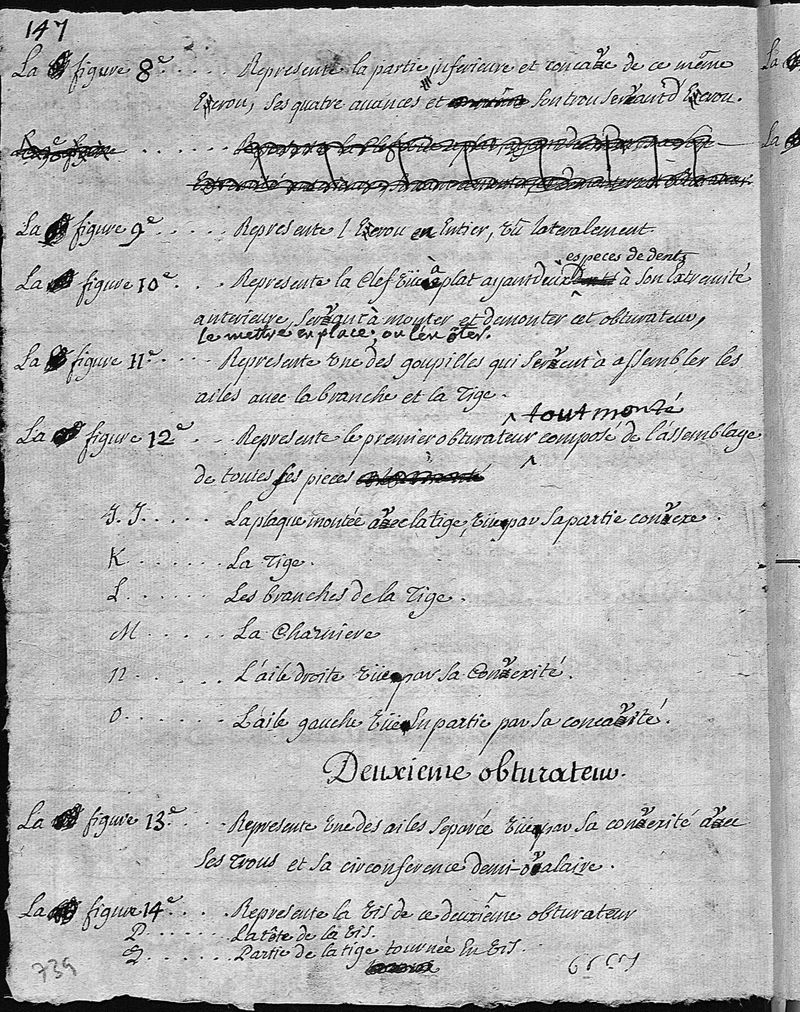 147
La figure 8e. . . . . . Represente la partie inferieure et concave de ce même
Ecrou, ses quatre avances et son trou servant d'Ecrou.
La figure 9e. . . . . . Represente l'Ecrou en Entier, vû lateralement.
especes de dents
La figure 10e. . . . Represente la Clef vüe à plat ayant deux à son Extremité
anterieure, servant à monter et demonter cet obturateur,
le mettre en place, ou l'en ôter.
La figure 11e. . . . Represente une des goupilles qui servent à assembler les
ailes avec la branche et la Tige.
tout monté
La figure 12e. . . Represente le premier obturateur composé de l'assemblage
de toutes ses pieces
J. J. . . . . . La plaque montée avec la tige, vüe par sa partie convexe.
K . . . . . . La Tige.
L . . . . . . Les branches de la Tige.
M . . . . . . La Charniere
n . . . . . . L'aile droite vüe par sa Convexité.
O . . . . . . L'aile gauche vüe En partie par sa concavité.
Deuxieme obturateur.
La figure 13e. . . . Represente une des ailes separée vüe par sa convexité avec
ses Trous et sa circonference demi-ovalaire.
La figure 14e. . . . . Represente la vis de ce deuxième obturateur
P . . . . . . La tête de la vis.
Q . . . . . . Partie de la tige tournée En vis.
739